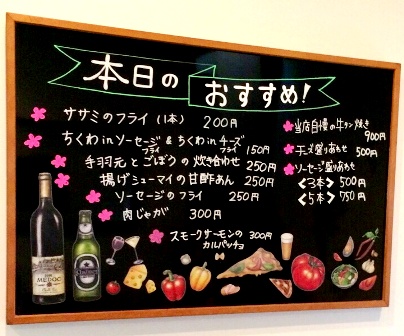 本日の
おすすめ!
ササミのフライ(1本) 200円
ちくわinソーセージフライ & ちくわinチーズフライ 150円
手羽元とごぼうの炊き合わせ 250円
揚げシューマイの甘酢あん 250円
ソーセージのフライ 250円
肉じゃが 300円
スモークサーモンの 300円
カルパッチョ
当店自慢の牛タン焼き
900円
チーズ盛りあわせ 500円
ソーセージ盛りあわせ
<3本> 500円
<5本> 750円
MEDOC